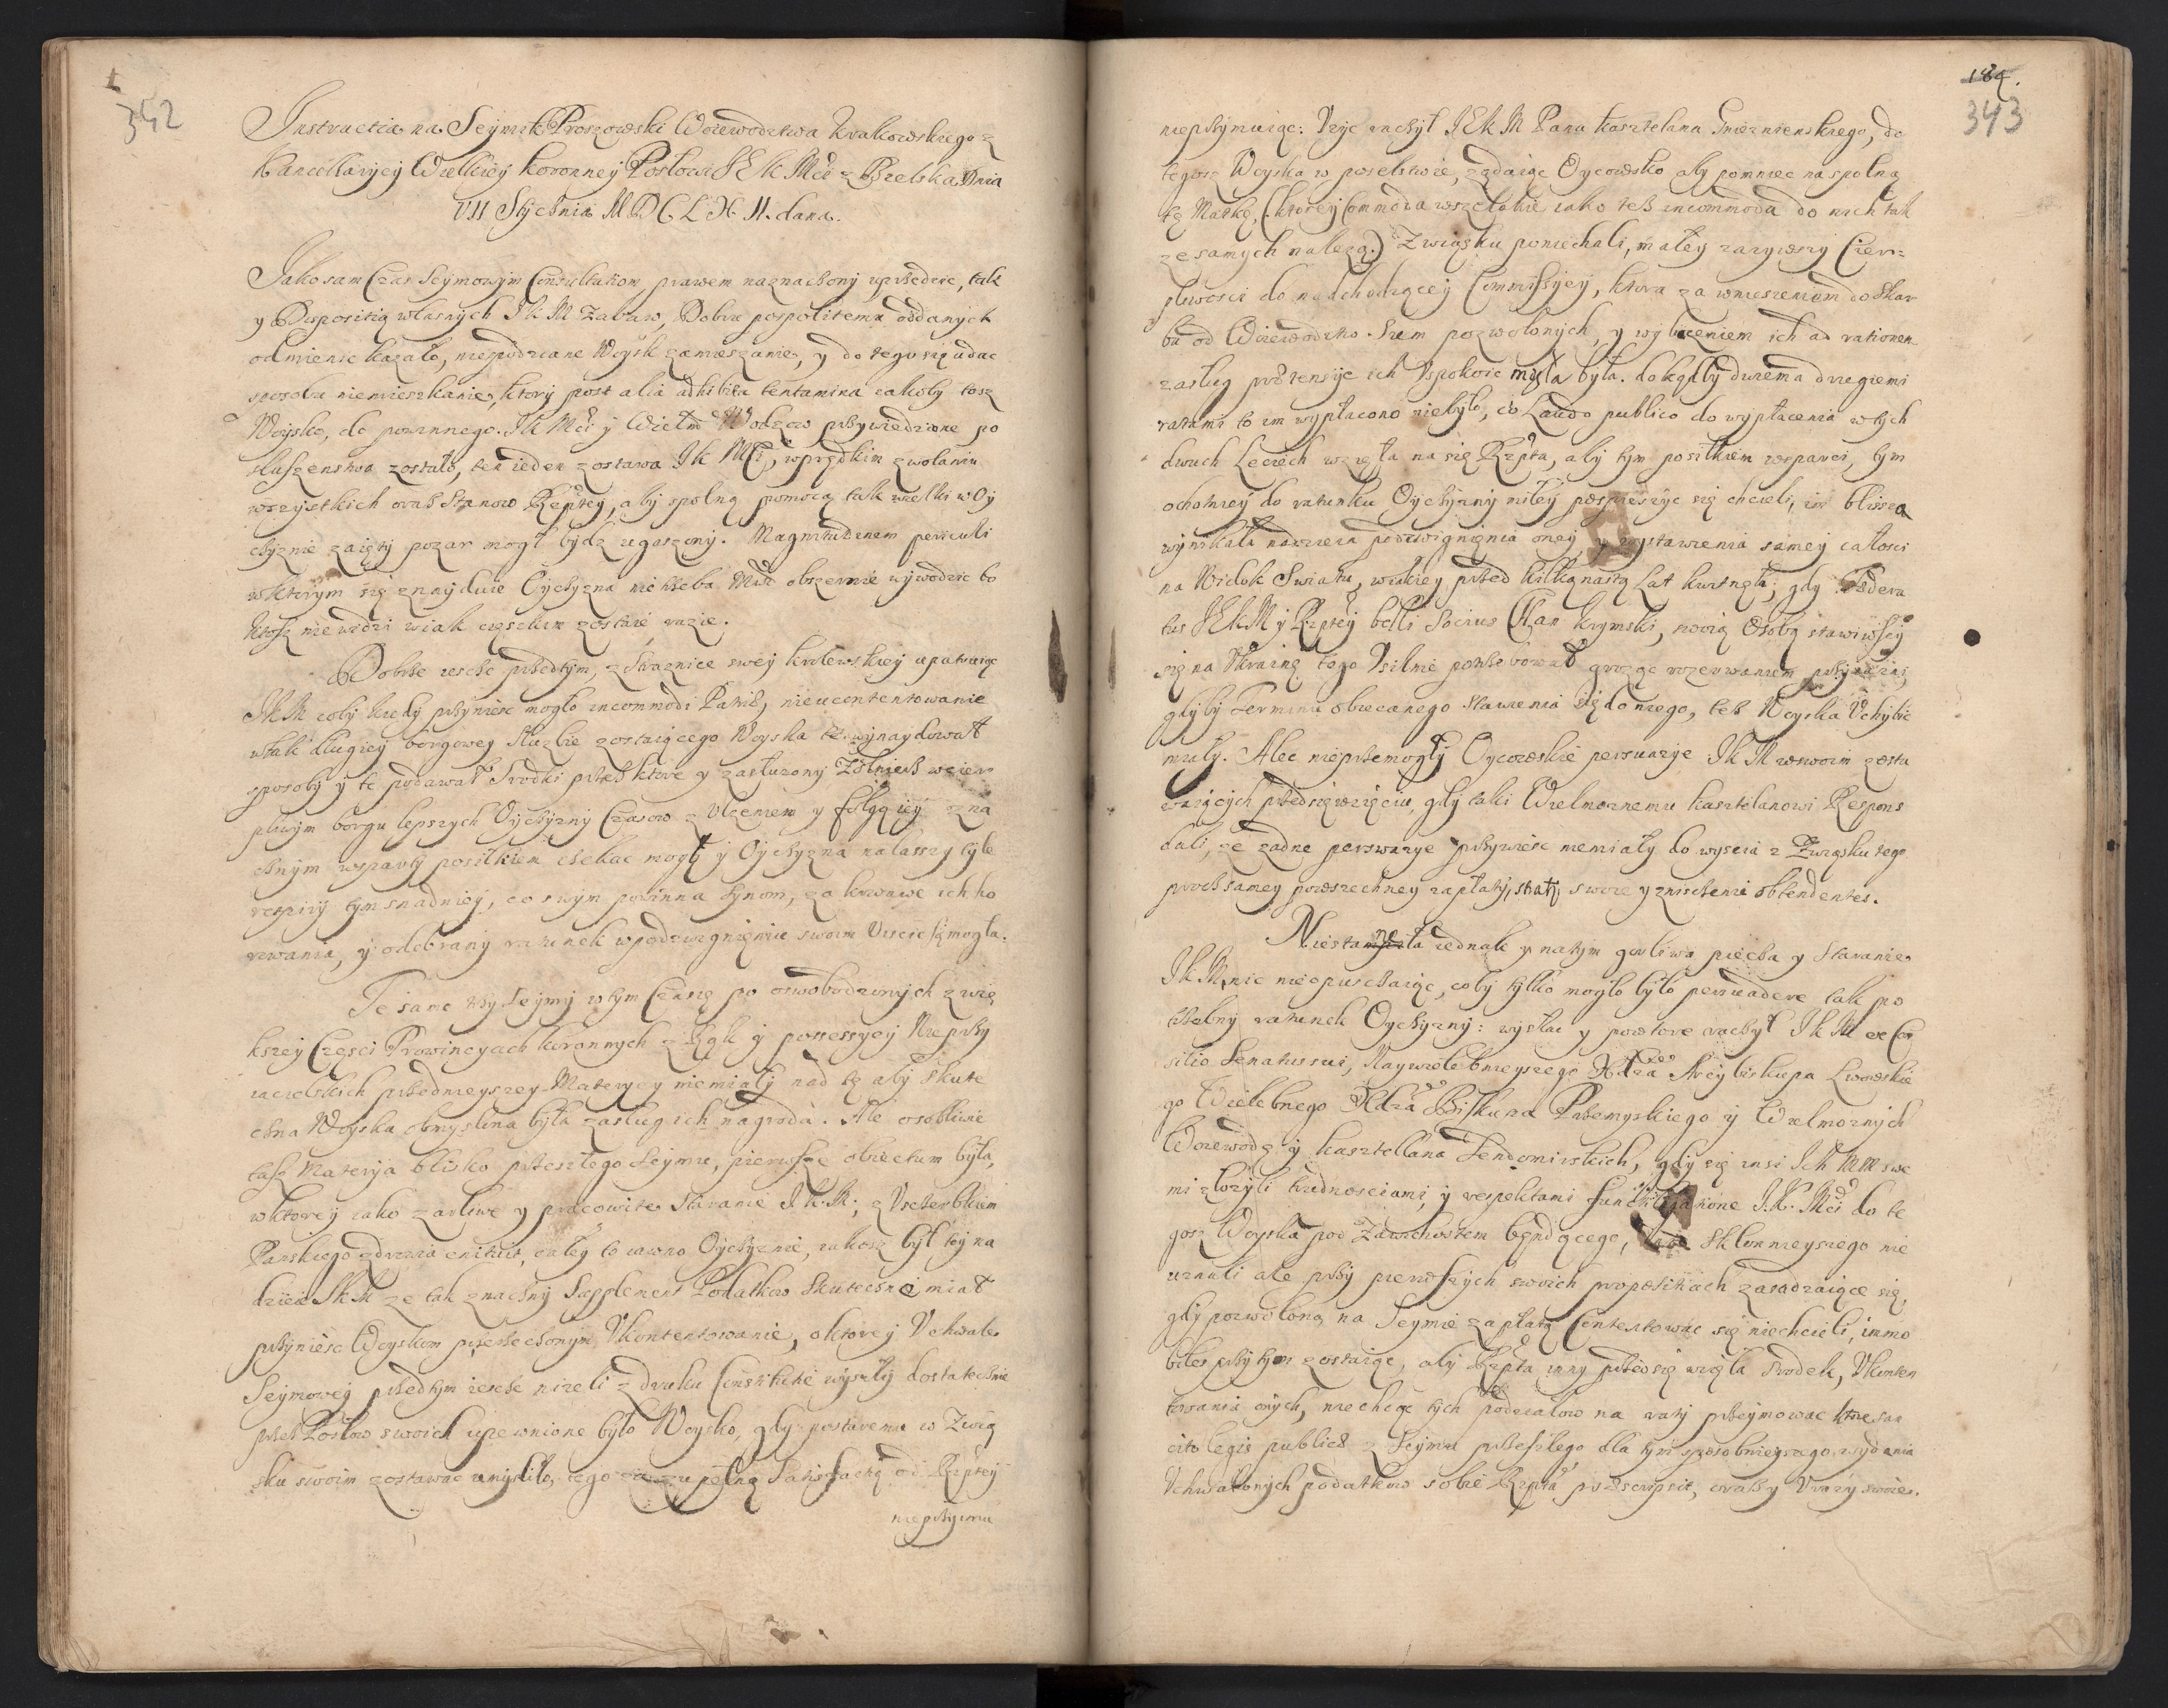 342
Instructia na Seymik Proszowski Woiewodztwa Krakowskiego z
Kancellaryey Wielkiey Koronney Posłowi JEK Mci z Bielska Dnia
VII Stycznia MDCLXII. dana.
Jako sam Czas Seymowym Consultatiom prawem naznaczony uprzedzic, tak
y Dispositią własnych JKM Zabaw, Dobru pospolitemu oddanych
odmienic kazało, niespodziane Woysk zamieszanie, y do tego się udac
sposobu niemieszkanie, ktory post alia adhibita tentamina iakoby tosz
Woysko, do powinnego JKMci y Wielm Wodzow przywiedzione po
słuszenstwa zostało, ten ieden zostawa JKMci, wprędkim zwołaniu
wszystkich oraz Stanow Rzptey, aby spolną pomocą tak wielki w Oy
czyznie zaięty pozar mogł bydz ugaszony. Magnitudinem periculi
wktorym się znayduie Oyczyzna nie trzeba obszernie wywodzic bo
ktosz niewidzi wiak cięszkim zostaie razie.
Dobrze iescze przedtym, z Straznice swey krolewskiey upatruiąc
JKM coby kiedy przyniesc mogło incommodi Panstw, nieucontentowanie
wtak długiey borgowey Słuzbie zostaiącego Woyska te wynaydował
sposoby y te podawał Srodki przez ktore y zasłuzony Zołnierz w cier
pliwym borgu lepszych Oyczyzny Czasow z Ulzeniem y folgą iey zna
cznym wsparty posiłkiem czekac mogł y Oyczyzna nalasszy tyle
respiry tym snadniey, co swym powinna Synom, za krwawe ich ho
rowania, y odebrany ratunek wpodzwignieniu swoim Uiscic się mogła.
Te same trzy Seymy wtym Czasie po oswobodzonych z wię
kszey Częsci Prowincyach koronnych z Rąk y possessyey Nieprzy
iacielskich przednieyszey Materyey niemiały nad tę aby skute
czna Woyska obmyslona była zasług ich nagroda. Ale osobliwie
tasz Materyja blisko przeszłego Seymu, pierwsze obiectum była,
wktorey iako zarliwe y pracowite Staranie J.K.M. z Usczerbkiem
Panskiego zdrowia enituit, całey to iawno Oyczyznie, iakosz był tey na
dzieie JKM ze tak znaczny Supplement Podatkow skutecznie miał
przyniesc Woyskom przerzeczonym Ukontentowanie, o ktorey Uchwale
Seymowey przedtym iescze nizeli z druku Constitutie wyszły dostatecznie
przez Posłow swoich upewnione było Woysko, gdy postaremu w Zwią
sku swoim zostawac umysliło, tego za zupełną Satisfactią od Rzptey
nieprzyimu
184.
343
nieprzyimuiąc: Uzyc raczył JEKM Pana Kasztelana Gnieznienskiego, do
tegosz Woyska w poselstwie, ządaiąc Oycowsko aby pomniec na spolną
tę Matkę, (ktorey Commoda wszelakie iako tesz incommoda do nich tak
ze samych nalezą) Związku poniechali, małey zazywszy Cier=
pliwosci do nadchodzącey Commissyey, ktora za wniesieniem do Skar
bu od Woiewodztw Sum pozwolonych, y wyliczeniem ich ad rationem
zasług prætensye ich Uspokoic miała była. dokądby dwiema drugiemi
ratami to im wypłacono niebyło, co Laudo publico do wypłacenia w tych
dwuch Leciech wzięła na się Rzpta, aby tym posiłkiem wsparci, tym
ochotniey do ratunku Oyczyzny miłey pospieszyc się chcieli, im blizsza
wynikała nadzieia podzwignienia oney, y wystawienia samey całosci
na Widok Swiatu, wiakiey przed kilkanastą Lat kwitnęła; gdy Fœdera
tus JEKM y Rzptey belli Socius Chan Krymski, swoią Osobą stawiwszy
się na Ukrainę tego Usilnie potrzebował grożąc rozerwaniem przyiazni,
gdyby Terminu obiecanego stawienia się do niego, też Woyska Uchybic
miały. Alec nieprzemogły Oycowskie perswazye JKM wswoim zosta
waiących przedsięwzięciu, gdy taki Wielmoznemu Kasztelanowi Respons
dali, że zadne perswazye przywiesc niemiały do wyscia z Związku tego
procz samey powszechney zapłaty, straty swoie y zniszczenie obtendentes.
Nieustanęła iednak y natym gorliwa piecza y staranie
JKM, nic nieopuszczaiąc, coby tylko mogło było persuadere tak po
trzebny ratunek Oyczyzny: wysłac y powtore raczył JKM ex Con
silio Senatus sui, Naywielebnieyszego Xdza Arcybiskupa Lwowskie
go Wielebnego Xdza Biskupa Przemyskiego y Wielmoznych
Woiewodę y Kasztellana Sendomirskich, gdy się insi Ich Mm swe
mi złozyli trudnosciami, y respektami functi legatione J.K.Mci do te
gosz Woyska pod Zawichostem będącego, sklonnieyszego nie
uznali ale przy pierwszych swoich propositiach zasadzaiące się,
gdy pozwoloną na Seymie zapłatą Contentowac się niechcieli, immo
biles przytym zostaiąc, aby Rzpta inny przedsięwzięła srodek, Ukonten
towania onych, niechcąc tych podziałow na raty przyimowac ktore san
cito legis publicæ z Seymu przeszłego dla tym sposobnieyszego wydania
Uchwalonych podatkow sobie Rzpta præscripsit, oraz y Urazy swoie.